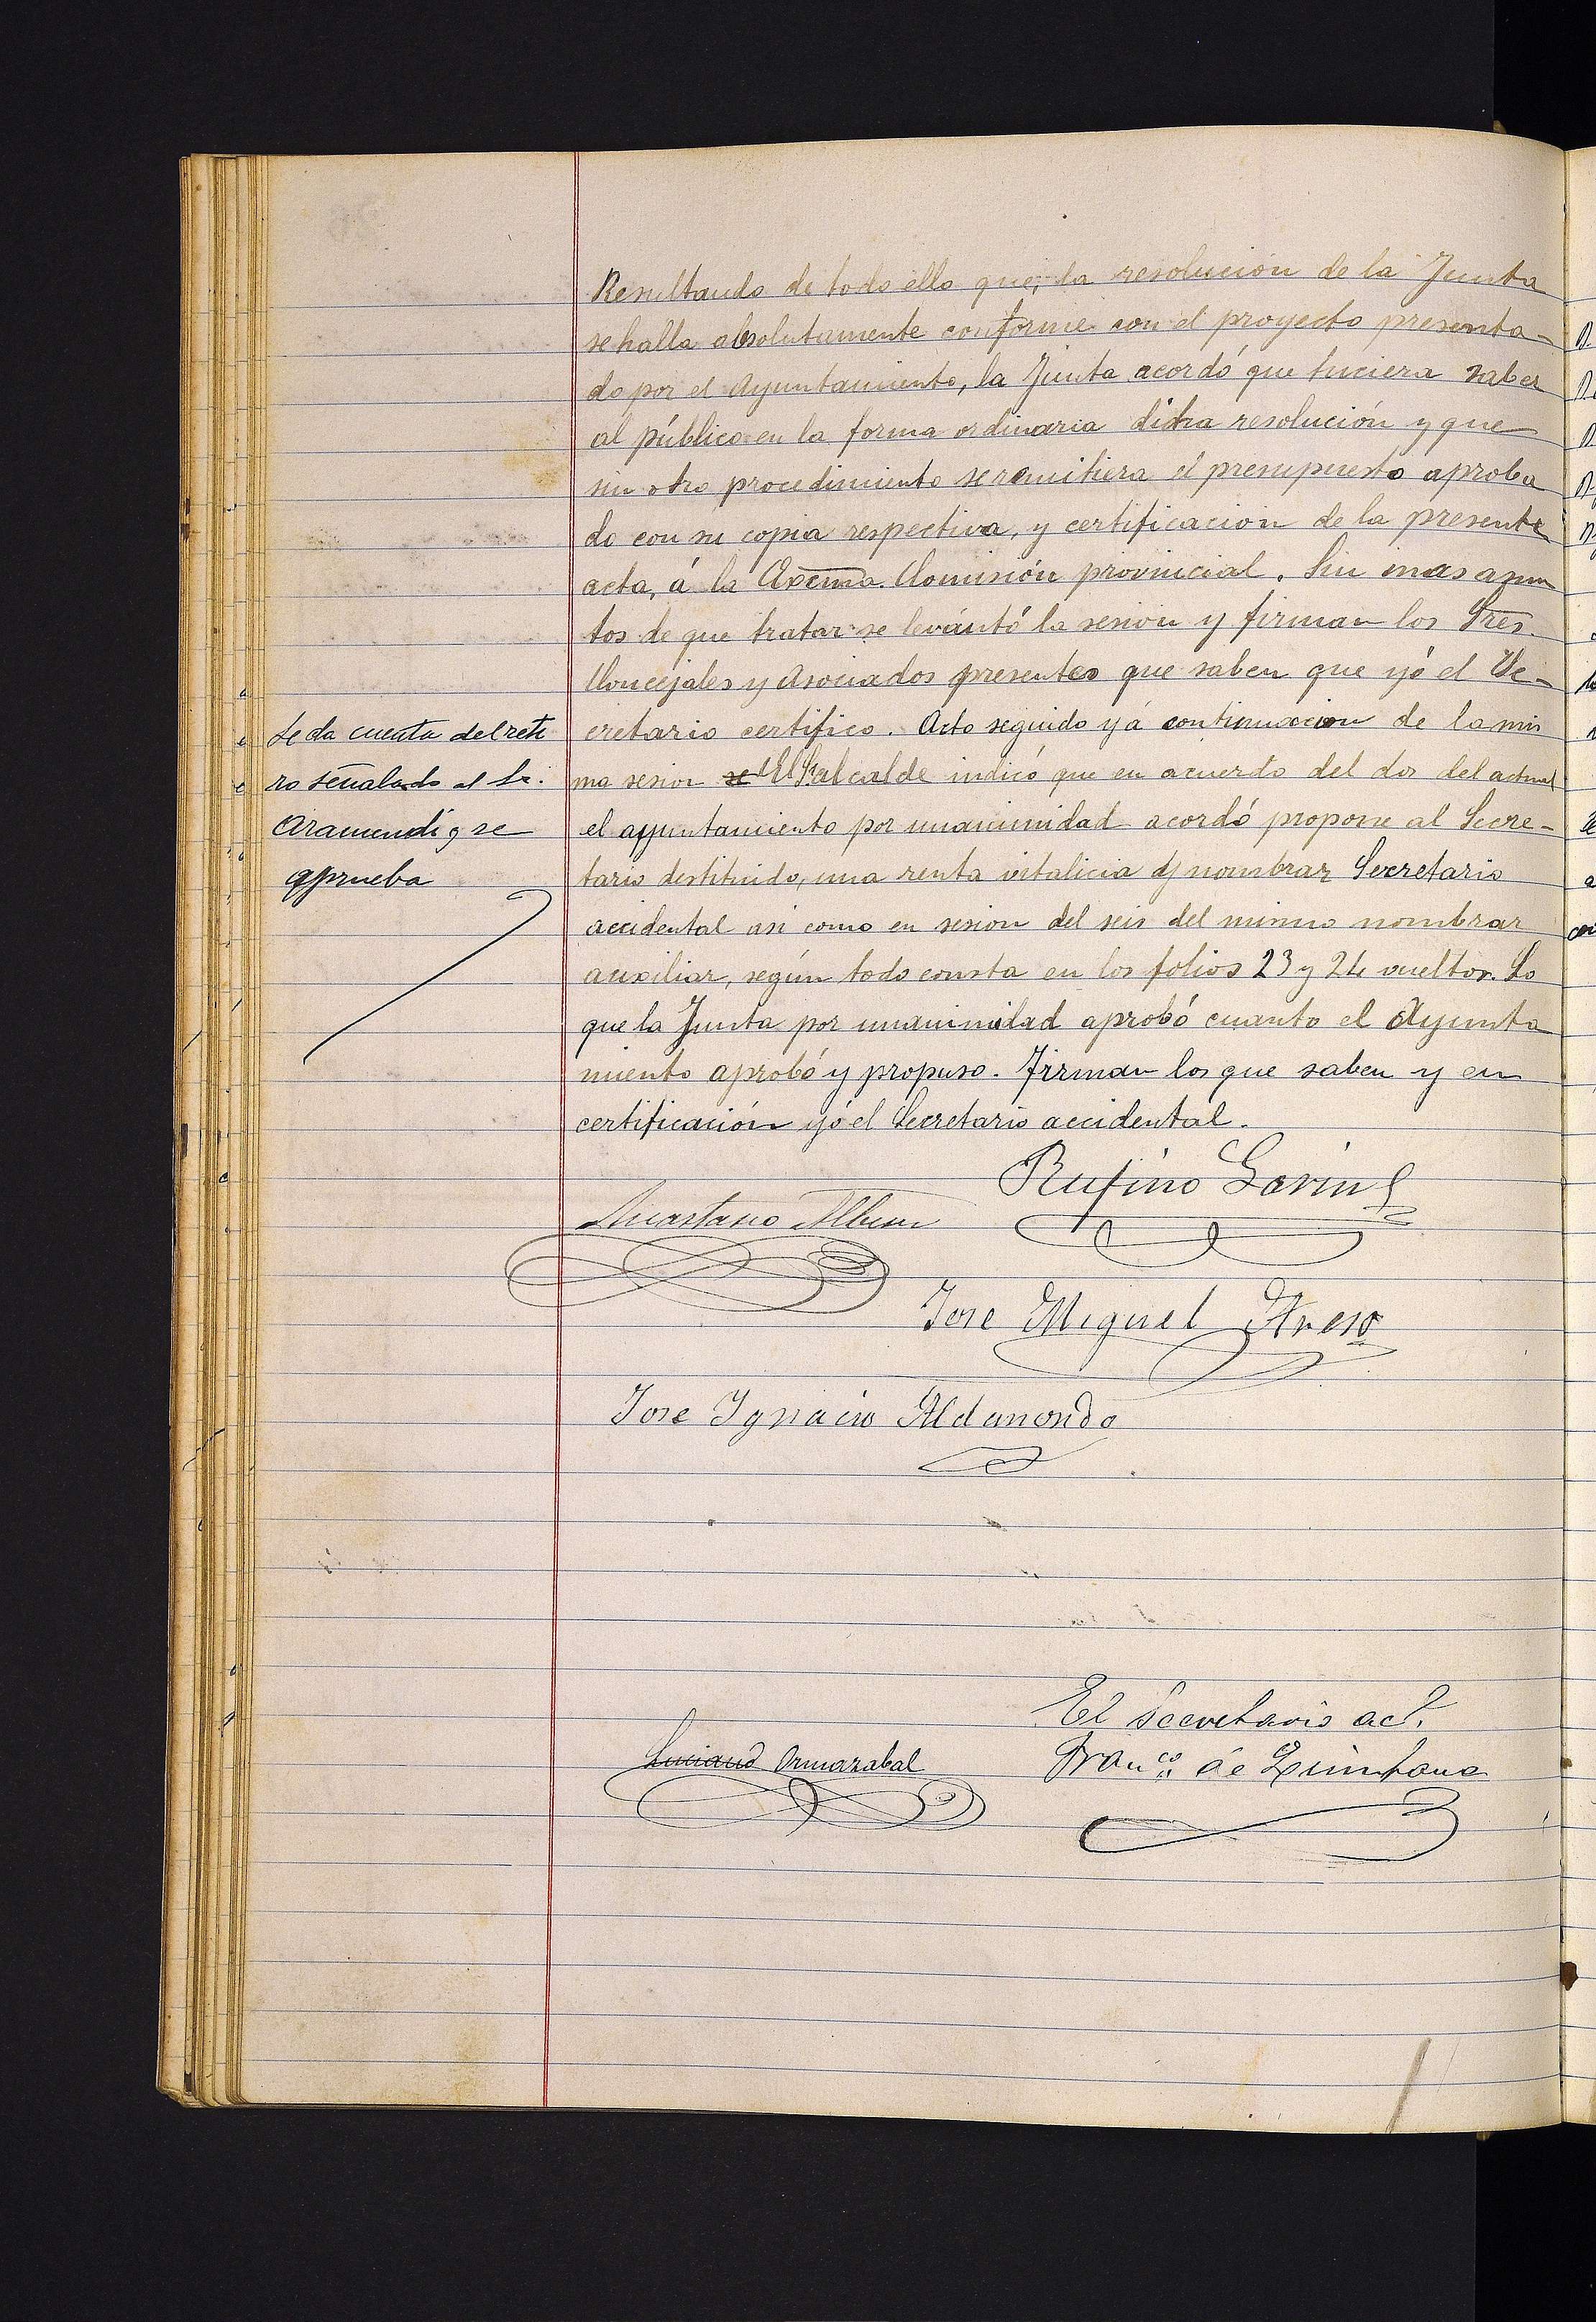 Resultando de todo ello que, la resolucion de la Junta
se halla absolutamente conforme con el proyecto presenta-
do por el Ayuntamiento, la Junta acordó que hiciera saber
al público en la forma ordinaria dicha resolución y que
sin otro procedimiento se remitiera el presupuesto aproba
do con su copia respectiva, y certificacion de la presente
acta, á la Excma. Comisión provincial. Sin mas asun
tos de que tratar se levántó la sesion y firman los Sres.
Concejales y Asociados presentes que saben que yó el Se-
cretario certifico. Acto seguido y á continuacion de la mis
ma sesion se El Sr. alcalde indicó que en acuerdo del dos del actual
el ayuntamiento por unanimidad acordó propone al Secre-
tario destituido, una renta vitalicia y nombrar Secretario
accidental asi como en sesion del seis del mismo nombrar
auxiliar, según todo consta en los folios 23 y 24 vueltos. Lo
que la Junta por unanimidad aprobó cuanto el Ayunta
miento aprobó y propuso. Firman los que saben y en
certificación yó el Secretario accidental.
Se da cuenta del reti
ro señalado al Sr.
Aramendi y se
aprueba
Rufino Lavin
Anastasio
Jose Miguel Areso
Jose Ignacio Aldanondo
El Secretario acl.
Franco. de Quintana
Luciano Ormazabal